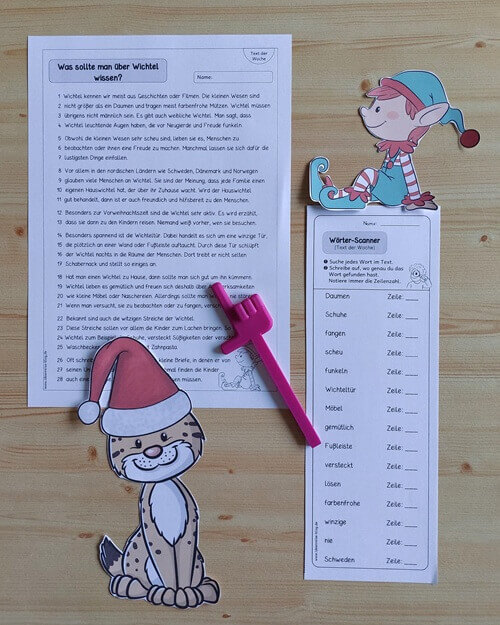 Text der
Woche
Was sollte man über Wichtel
wissen?
Name:
1 Wichtel kennen wir meist aus Geschichten oder Filmen. Die kleinen Wesen sind
2 nicht größer als ein Daumen und tragen meist farbenfrohe Mützen. Wichtel müssen
3 übrigens nicht männlich sein. Es gibt auch weibliche Wichtel. Man sagt, dass
4 Wichtel leuchtende Augen haben, die vor Neugierde und Freude funkeln.
5 Obwohl die kleinen Wesen sehr scheu sind, lieben sie es, Menschen zu
6 beobachten oder ihnen eine Freude zu machen. Manchmal lassen sie sich dafür die
7 lustigsten Dinge einfallen.
8 Vor allem in den nordischen Ländern wie Schweden, Dänemark und Norwegen
9 glauben viele Menschen an Wichtel. Sie sind der Meinung, dass jede Familie einen
10 eigenen Hauswichtel hat, der über ihr Zuhause wacht. Wird der Hauswichtel
11 gut behandelt, dann ist er auch freundlich und hilfsbereit zu den Menschen.
12 Besonders zur Vorweihnachtszeit sind die Wichtel sehr aktiv. Es wird erzählt,
13 dass sie dann zu den Kindern reisen. Niemand weiß vorher, wen sie besuchen.
14 Besonders spannend ist die Wichteltür. Dabei handelt es sich um eine winzige Tür,
15 die plötzlich an einer Wand oder Fußleiste auftaucht. Durch diese Tür schlüpft
16 der Wichtel nachts in die Räume der Menschen. Dort treibt er nicht selten
17 Schabernack und stellt so einiges an.
18 Hat man einen Wichtel zu Hause, dann sollte man sich gut um ihn kümmern.
19 Wichtel lieben es gemütlich und freuen sich deshalb über
20 wie kleine Möbel oder Naschereien. Allerdings sollte man
21 Wenn man versucht, sie zu beobachten oder zu fangen,
22 Bekannt sind auch die witzigen Streiche der Wichtel.
23 Diese Streiche sollen vor allem die Kinder zum Lachen bringen. So
24 Wichtel zum Beispiel versteckt Süßigkeiten oder
25 Waschbecken Zahnpasta.
26 Oft kleine Briefe, in denen er von
27 seinen finden die Kinder
28 auch eine müssen.
Name:
Wörter-Scanner
(Text der Woche)
Suche jedes Wort im Text.
Schreibe auf, wo genau du das
Wort gefunden hast.
Notiere immer die Zeilenzahl.
Daumen Zeile:
Schuhe Zeile:
fangen Zeile:
scheu Zeile:
funkeln Zeile:
Wichteltür Zeile:
Möbel Zeile:
gemütlich Zeile:
Fußleiste Zeile:
versteckt Zeile:
lösen Zeile:
farbenfrohe Zeile:
winzige Zeile:
nie Zeile:
Schweden Zeile: